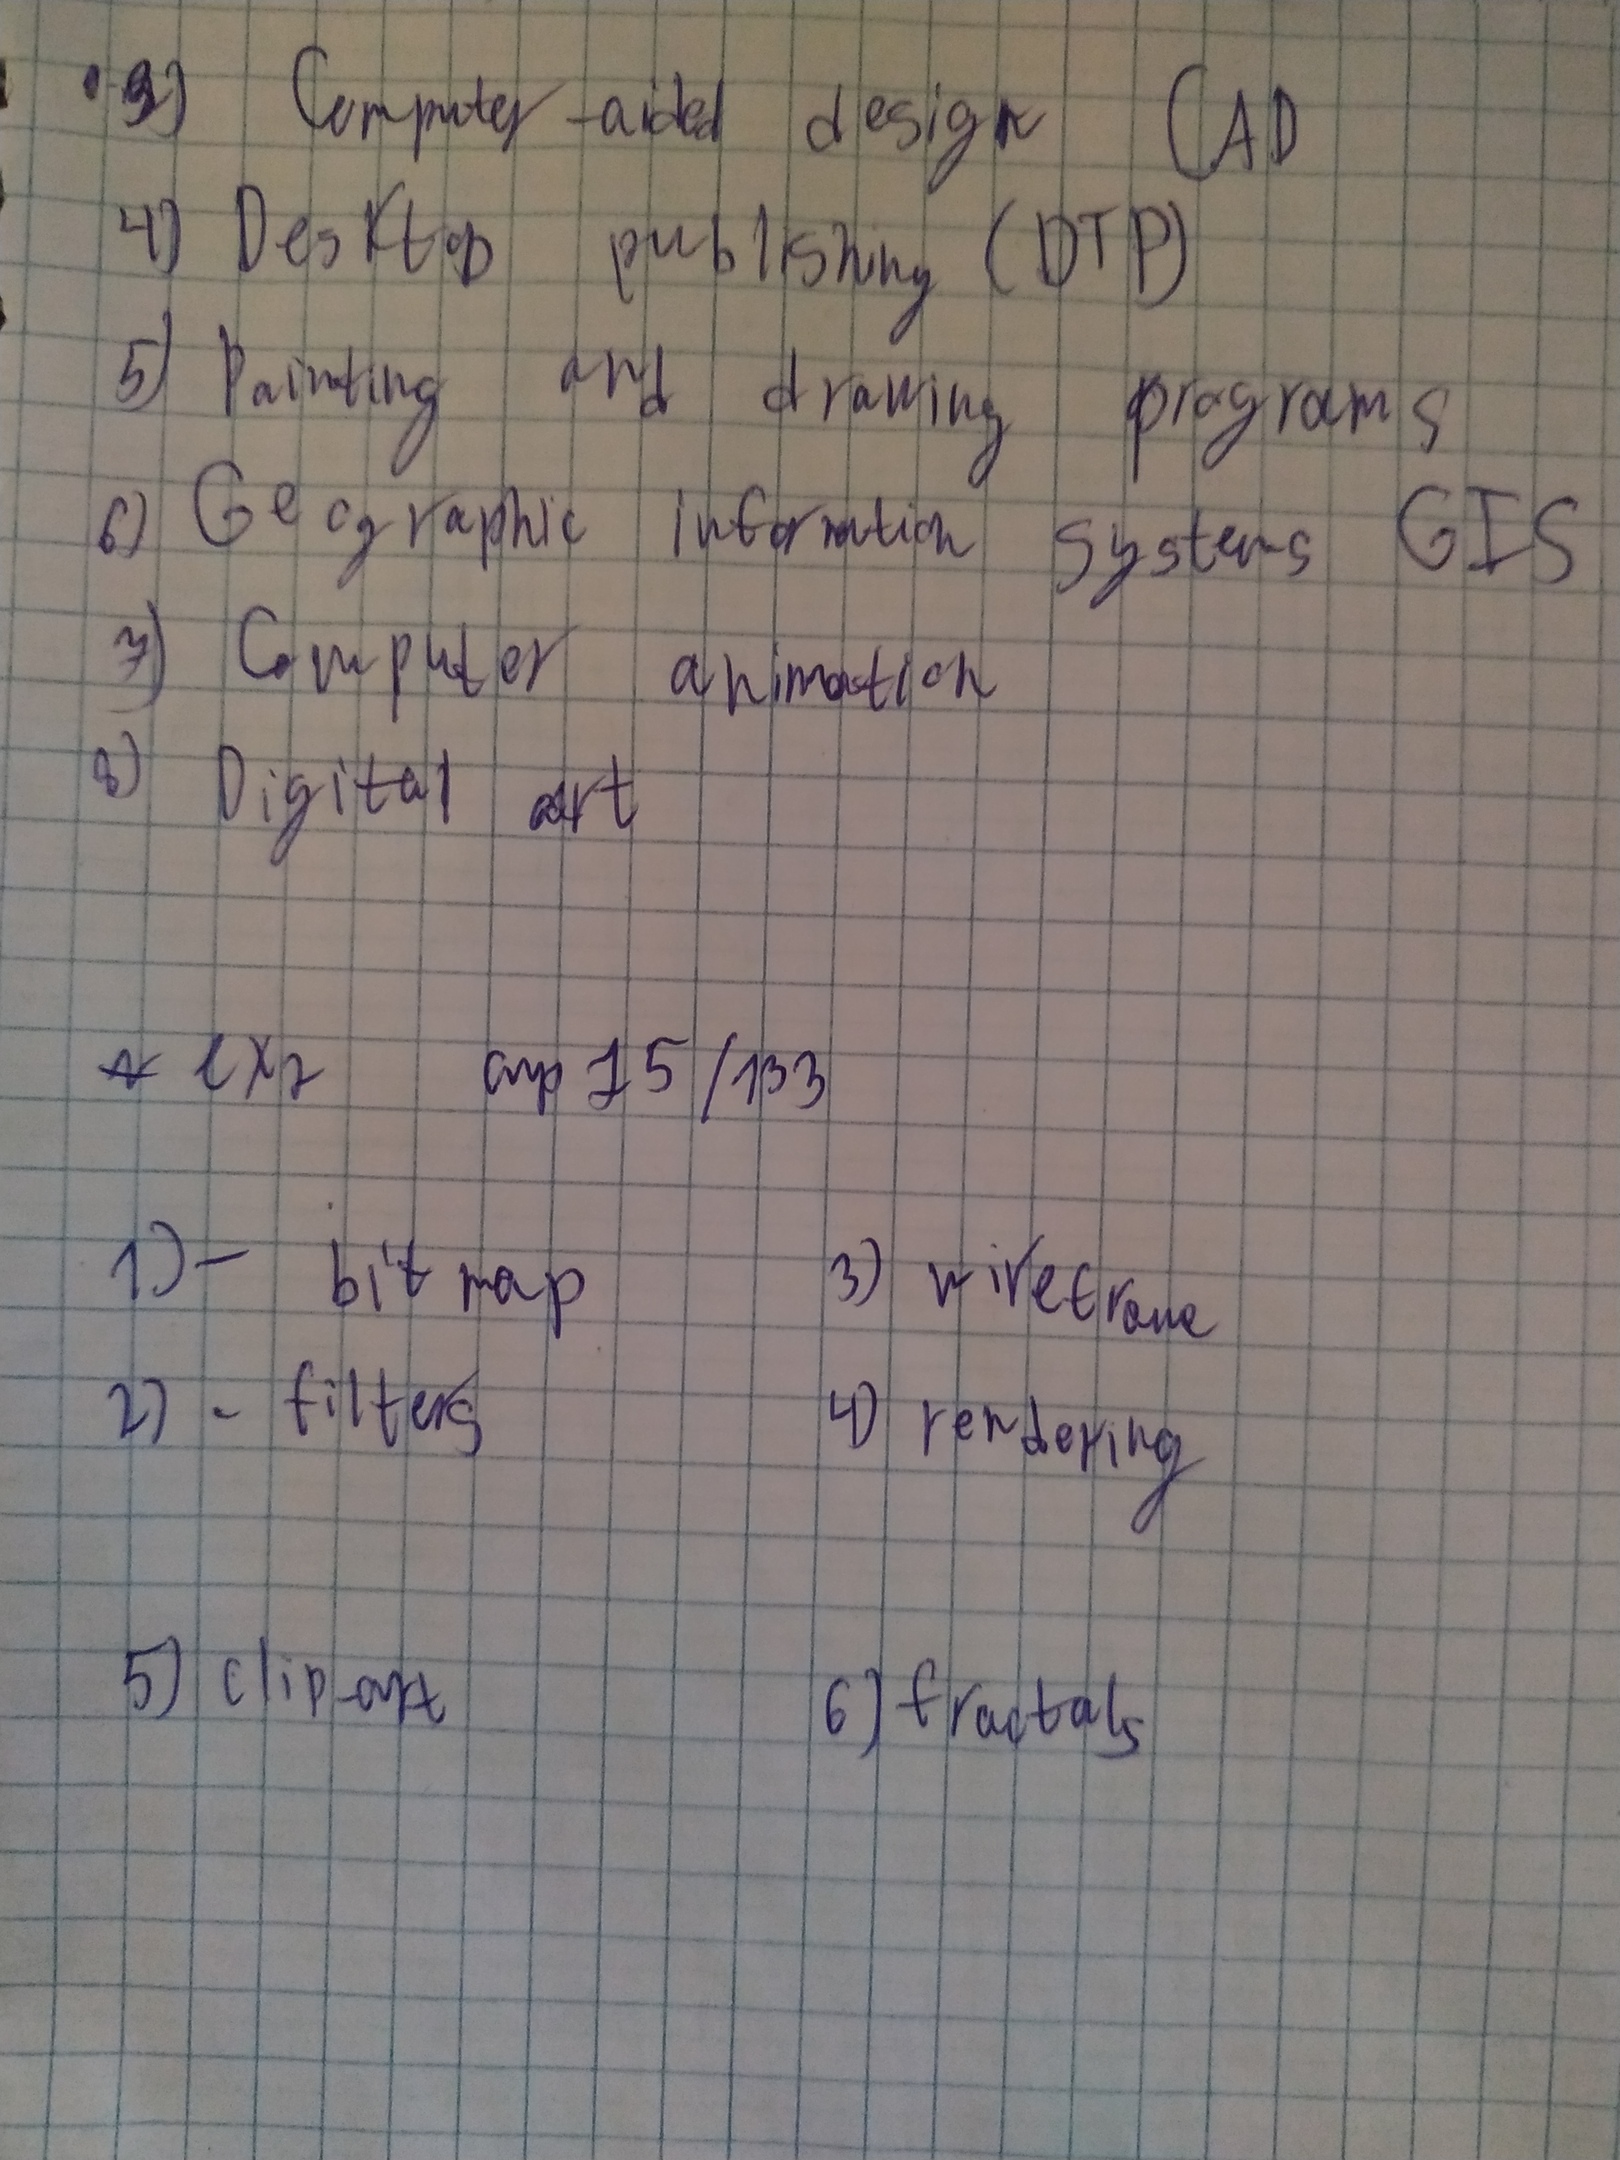 3) Computer-aided design CAD
4) Desktop publishing (DTP)
5) Painting and drawing programs
6) Geographic information systems GIS
7) Computer animation
8) Digital art
* ex2 стр 15/133
1) - bitmap 3) wireframe
2) - filters 4) rendering
5) clip-art 6) fractals